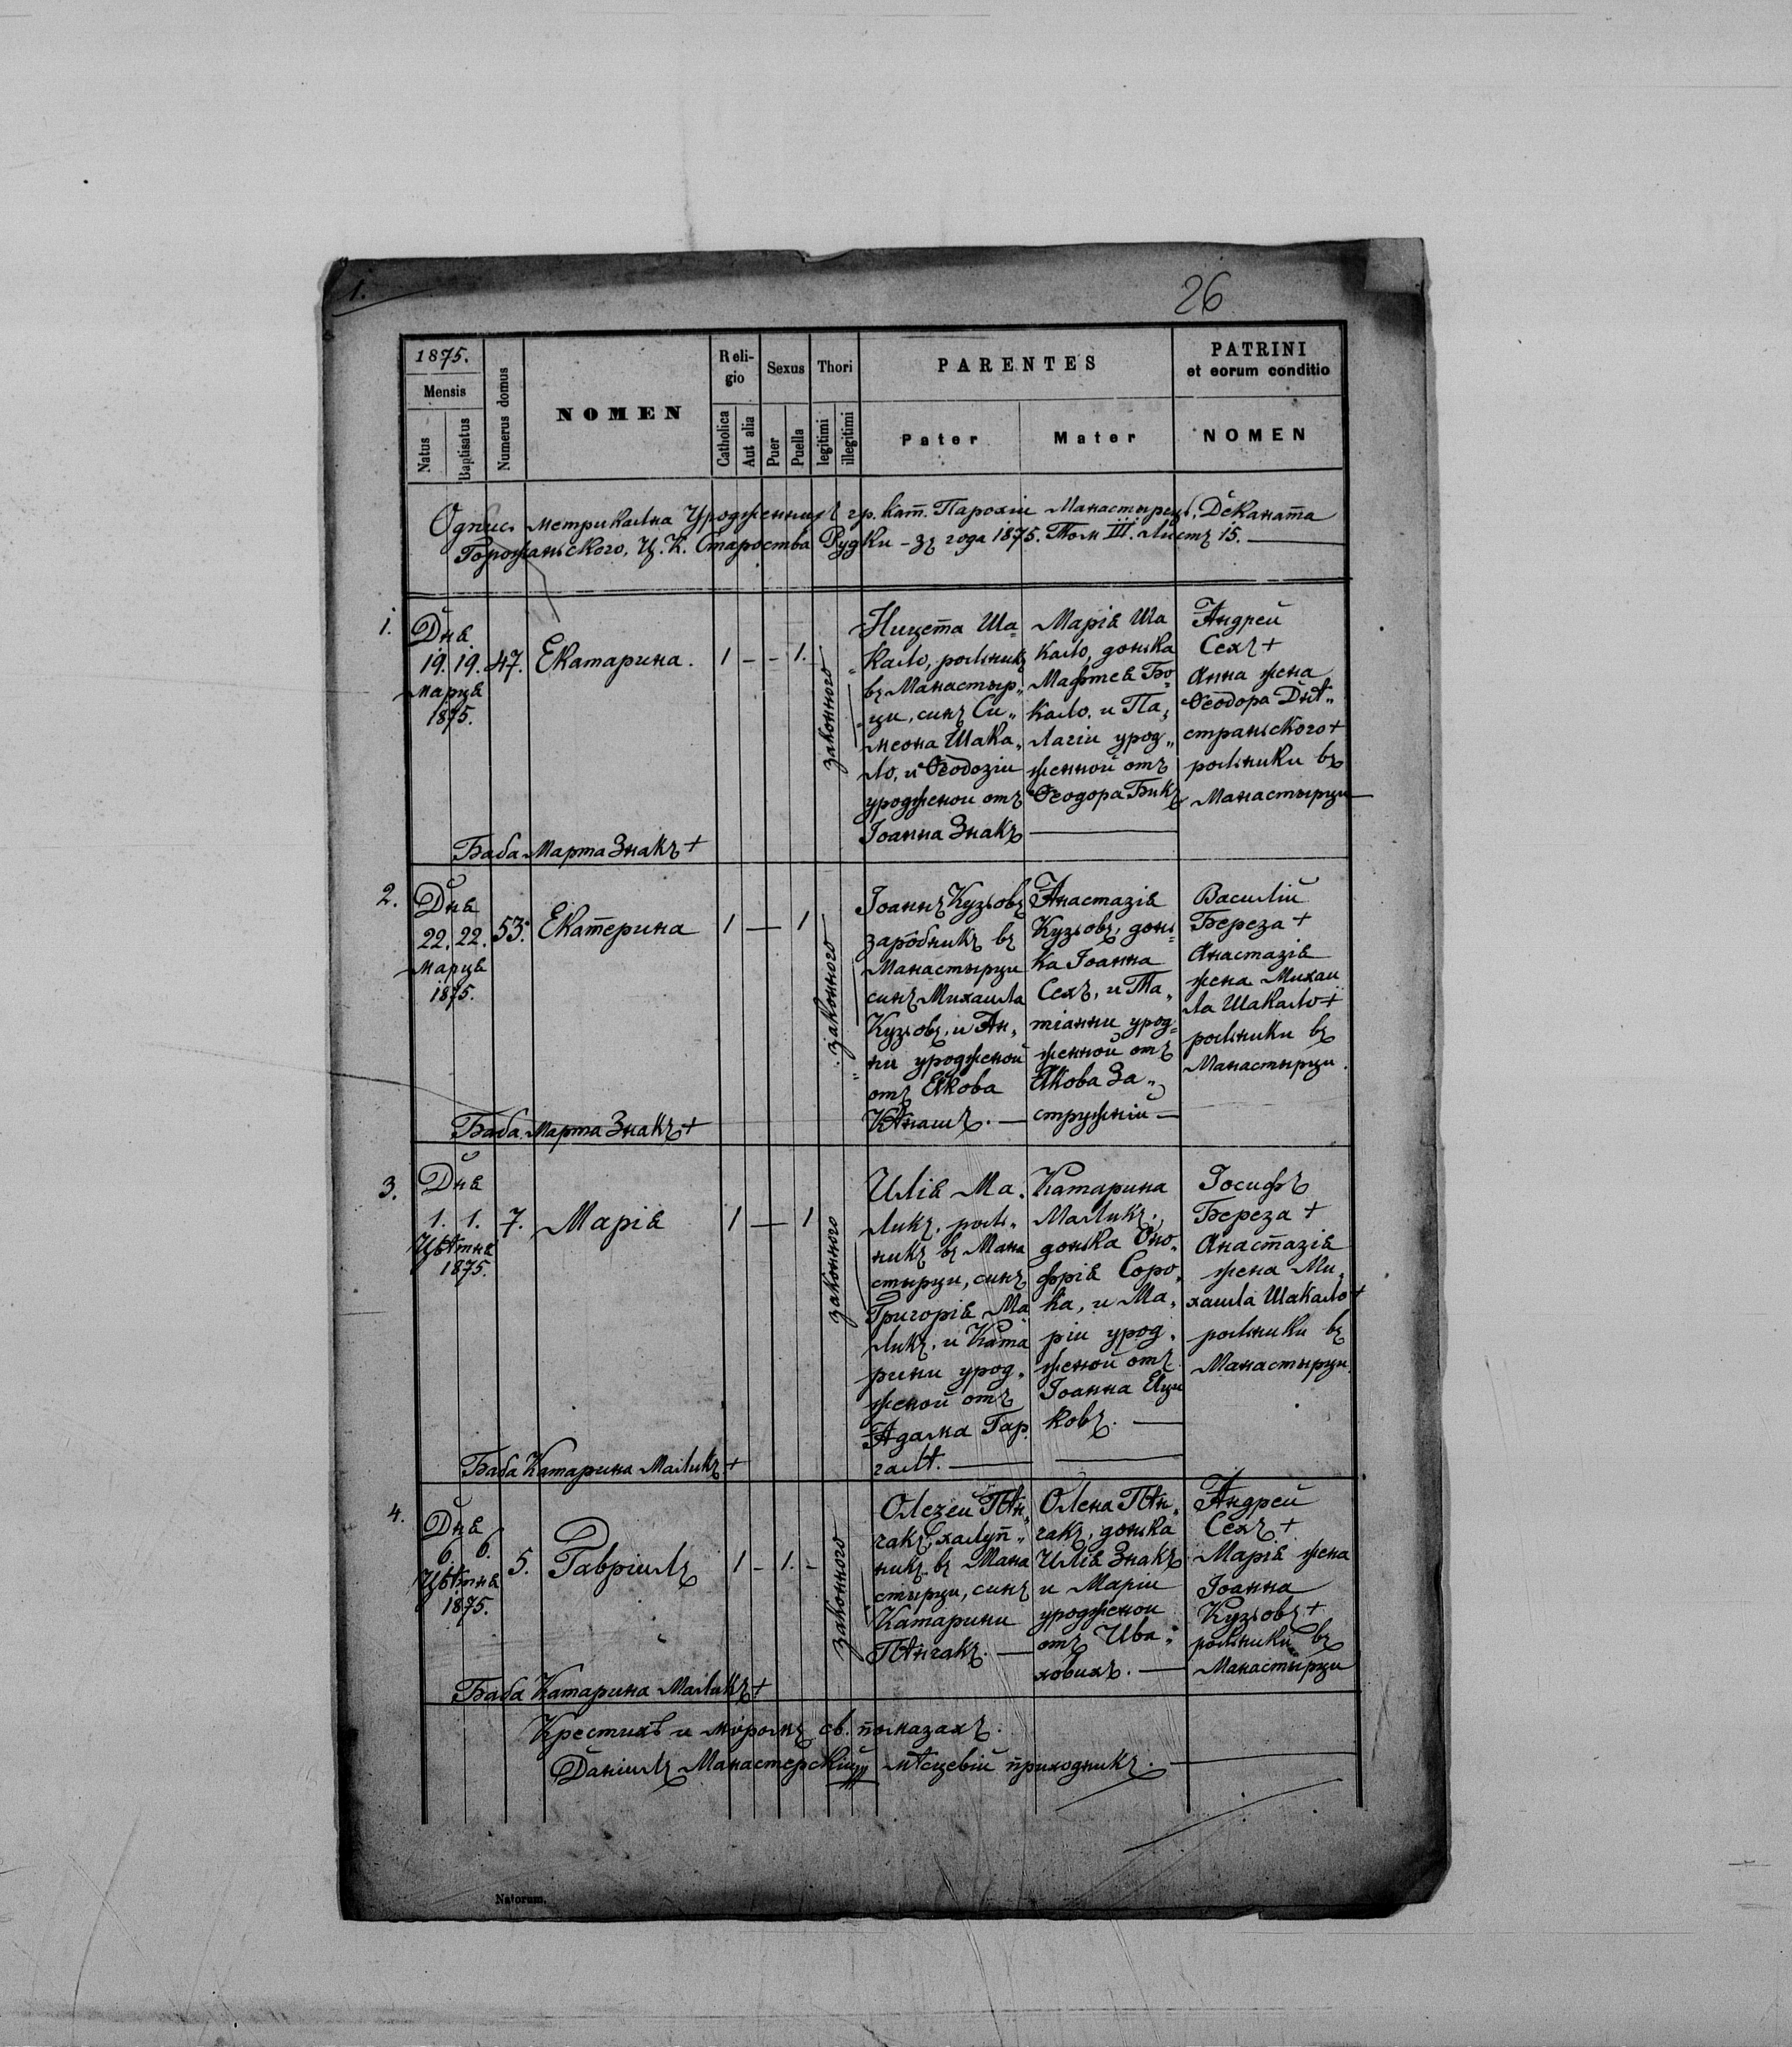 1.
26
1875.
Mensis
Natus
Baptisatus
Numerus domus
NOMEN
Religio
Catholica
Aut alia
Sexus
Puer
Puella
Thori
legitimi
illegitimi
PARENTES
Pater
Mater
PATRINI
et eorum conditio
NOMEN
Одпис метрикална Урожденных гр. кат. Парохіи Манастырець, Деканата
Горожаньского, Ц. К. Староства Рудки – зъ года 1875. Том III. Листъ 15. —
1.
Дня
19. 19. 47. Екатарина. 1 – – 1.
Марця
1875.
законного
Никета Ша=
кало, рольникъ
въ Манастыр„
ци, синъ Си„
меона Шака„
ло, и Ѳеодозіи
уродженои отъ
Іоанна Знакъ
Марія Ша
кало, донька
Мафтея Бо=
кало, и Па„
лагіи урод„
женной отъ
Ѳеодора Бикъ
Андрей
Сехъ +
Анна жена
Ѳеодора Днѣ„
страньского +
рольники въ
Манастырци
Баба Марта Знакъ +
2.
Дня
22. 22. 53. Екатерина 1 — 1
Марця
1875.
законного
Іоаннъ Кузьовъ
заробникъ въ
Манастырци
синъ Михаила
Кузьовъ, и Ан„
ни уродженой
отъ Якова
Кѣнашъ. —
Анастазія
Кузьовъ, донь
ка Іоанна
Сехъ, и Та„
тіанни урод=
женной отъ
Якова За„
стружній —
Василій
Береза +
Анастазія
жена Михаи
ла Шакало +
рольники въ
Манастырци.
Баба Марта Знакъ +
3.
Дня
1. 1. 7. Марія 1 — 1
Цвѣтня
1875.
законного
Илія Ма.
ликъ, роль„
никъ въ Мана
стырци, синъ
Григорія Ма
ликъ, и Ката
рини урод„
женой отъ
Адама Гар.
галѣ. —
Катарина
Маликъ,
донька Оно„
фрія Соро„
ка, и Ма„
ріи урод„
женой отъ
Іоанна Яци
ковъ. —
Іосифъ
Береза +
Анастазія
жена Ми„
хаила Шакало +
рольники въ
Манастырци
Баба Катарина Маликъ +
4.
Дня
6. 6. 5. Гавріилъ 1 – 1. –
Цвѣтня
1875.
законного
Олезей Пѣн„
гакъ, халуп„
никъ въ Мана
стырци, синъ
Катарини
Пѣнгакъ. —
Олена Пѣн„
гакъ, донька
Илія Знакъ
и Маріи
уродженои
отъ Ива„
ховихъ. —
Андрей
Сехъ +
Марія жена
Іоанна
Кузьовъ +
рольники въ
Манастырци
Баба Катарина Маликъ +
Крестихъ и мѵромъ св. помазахъ.
Даніилъ Манастерскій мѣсцевій приходникъ. —
Natorum.